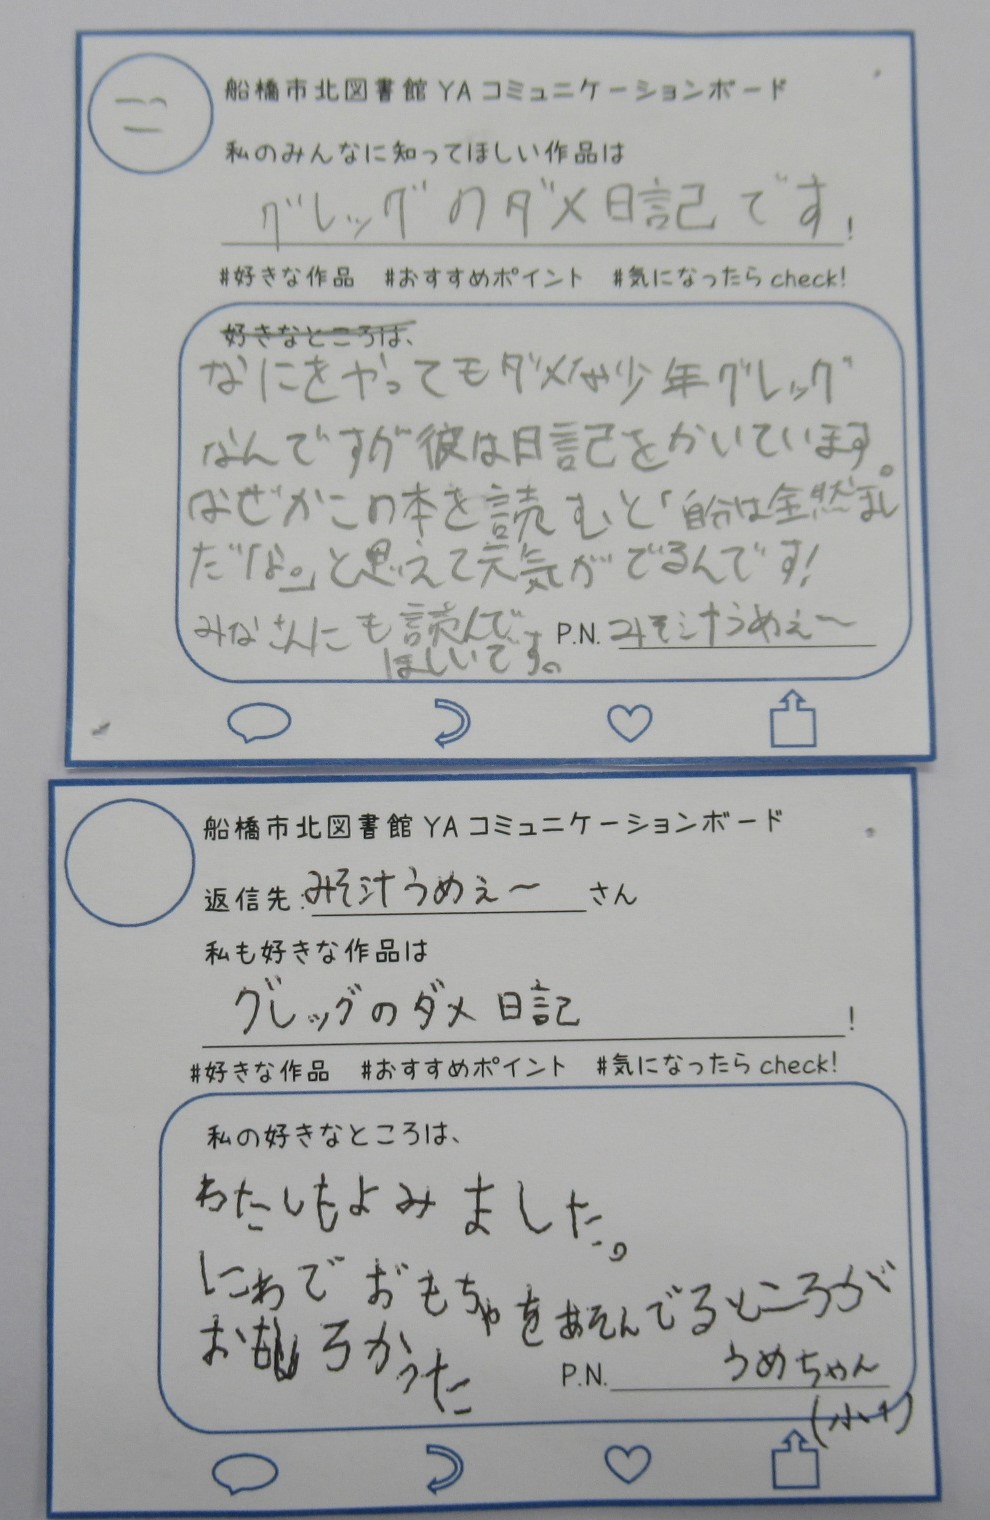 船橋市北図書館YAコミュニケーションボード
私のみんなに知ってほしい作品は
グレッグのダメ日記です!
#好きな作品 #おすすめポイント #気になったらcheck!
好きなところは、
なにをやってもダメダメ少年グレッグ
なんですが彼は日記をかいています。
なぜかこの本を読むと「自分は全然まし
だな。」と思えて元気がでるんです!
みなさんにも読んで
ほしいです。
P.N. みそ汁うめぇ〜
船橋市北図書館YAコミュニケーションボード
返信先:みそ汁うめぇ〜さん
私も好きな作品は
グレッグのダメ日記!
#好きな作品 #おすすめポイント #気になったらcheck!
私の好きなところは、
わたしもよみました。
にわでおもちゃをあそんでるところが
おもしろかった
P.N. うめちゃん